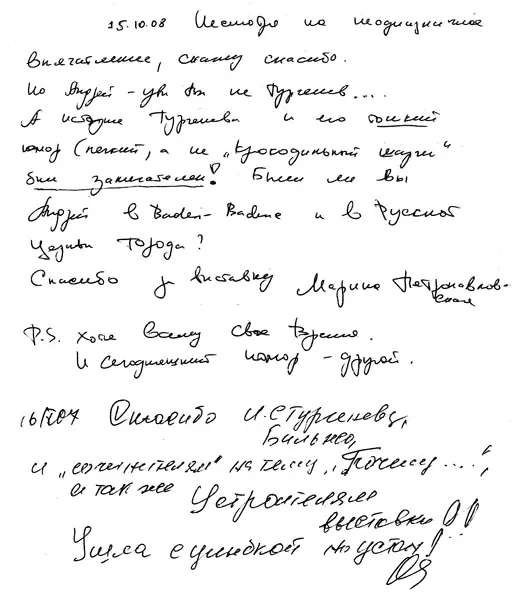 15.10.08 Несмотря на неоднозначное
впечатление, скажу спасибо.
Но Андрей - увы Вы не Тургенев...
А история Тургенева и его тонкий
юмор (легкий, а не „крокодильный шарж“
был замечателен! Были ли вы
Андрей в Baden-Badene и в Русской
церкви города?
Спасибо за выставку Марина Петр
P.S. хотя всему свое время.
И сегодняшний юмор - другой.
16/X07 Спасибо И.С.Тургеневу,
Бильжо,
и „сочинителям“ на тему „Почему....“,
а также Устроителям
выставки!!
Ушла с улыбкой на устах!